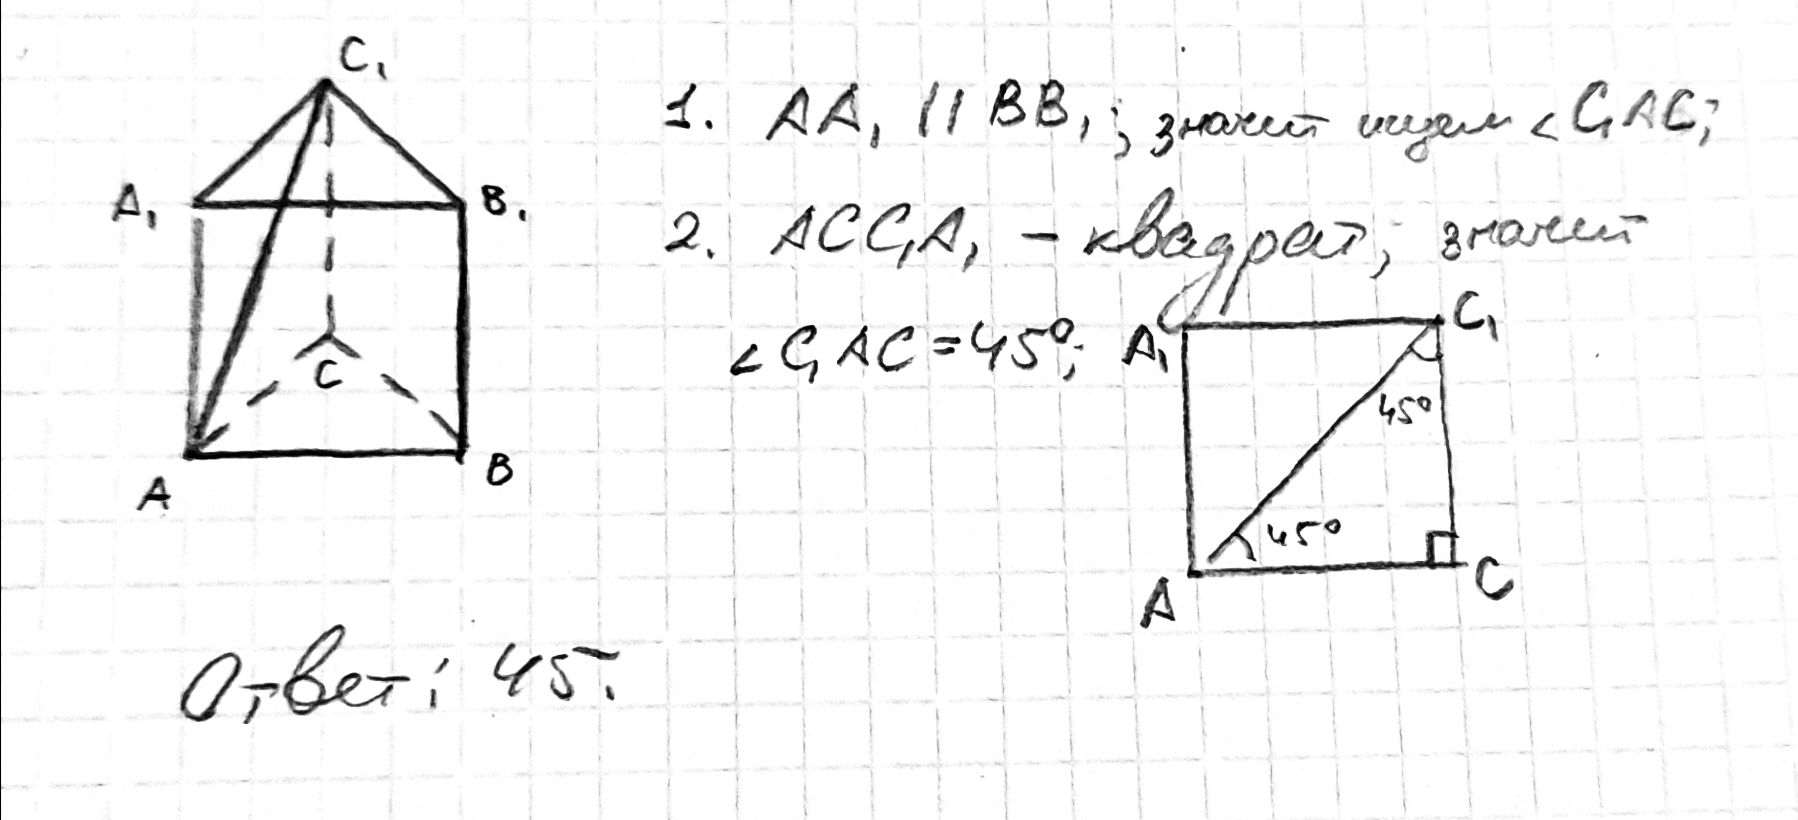 C₁
A₁
B₁
C
A
B
1. AA₁ || BB₁; значит ищем <C₁AC;
2. ACC₁A₁ - квадрат; значит
<C₁AC=45°;
A₁
C₁
45°
45°
A
C
Ответ: 45.